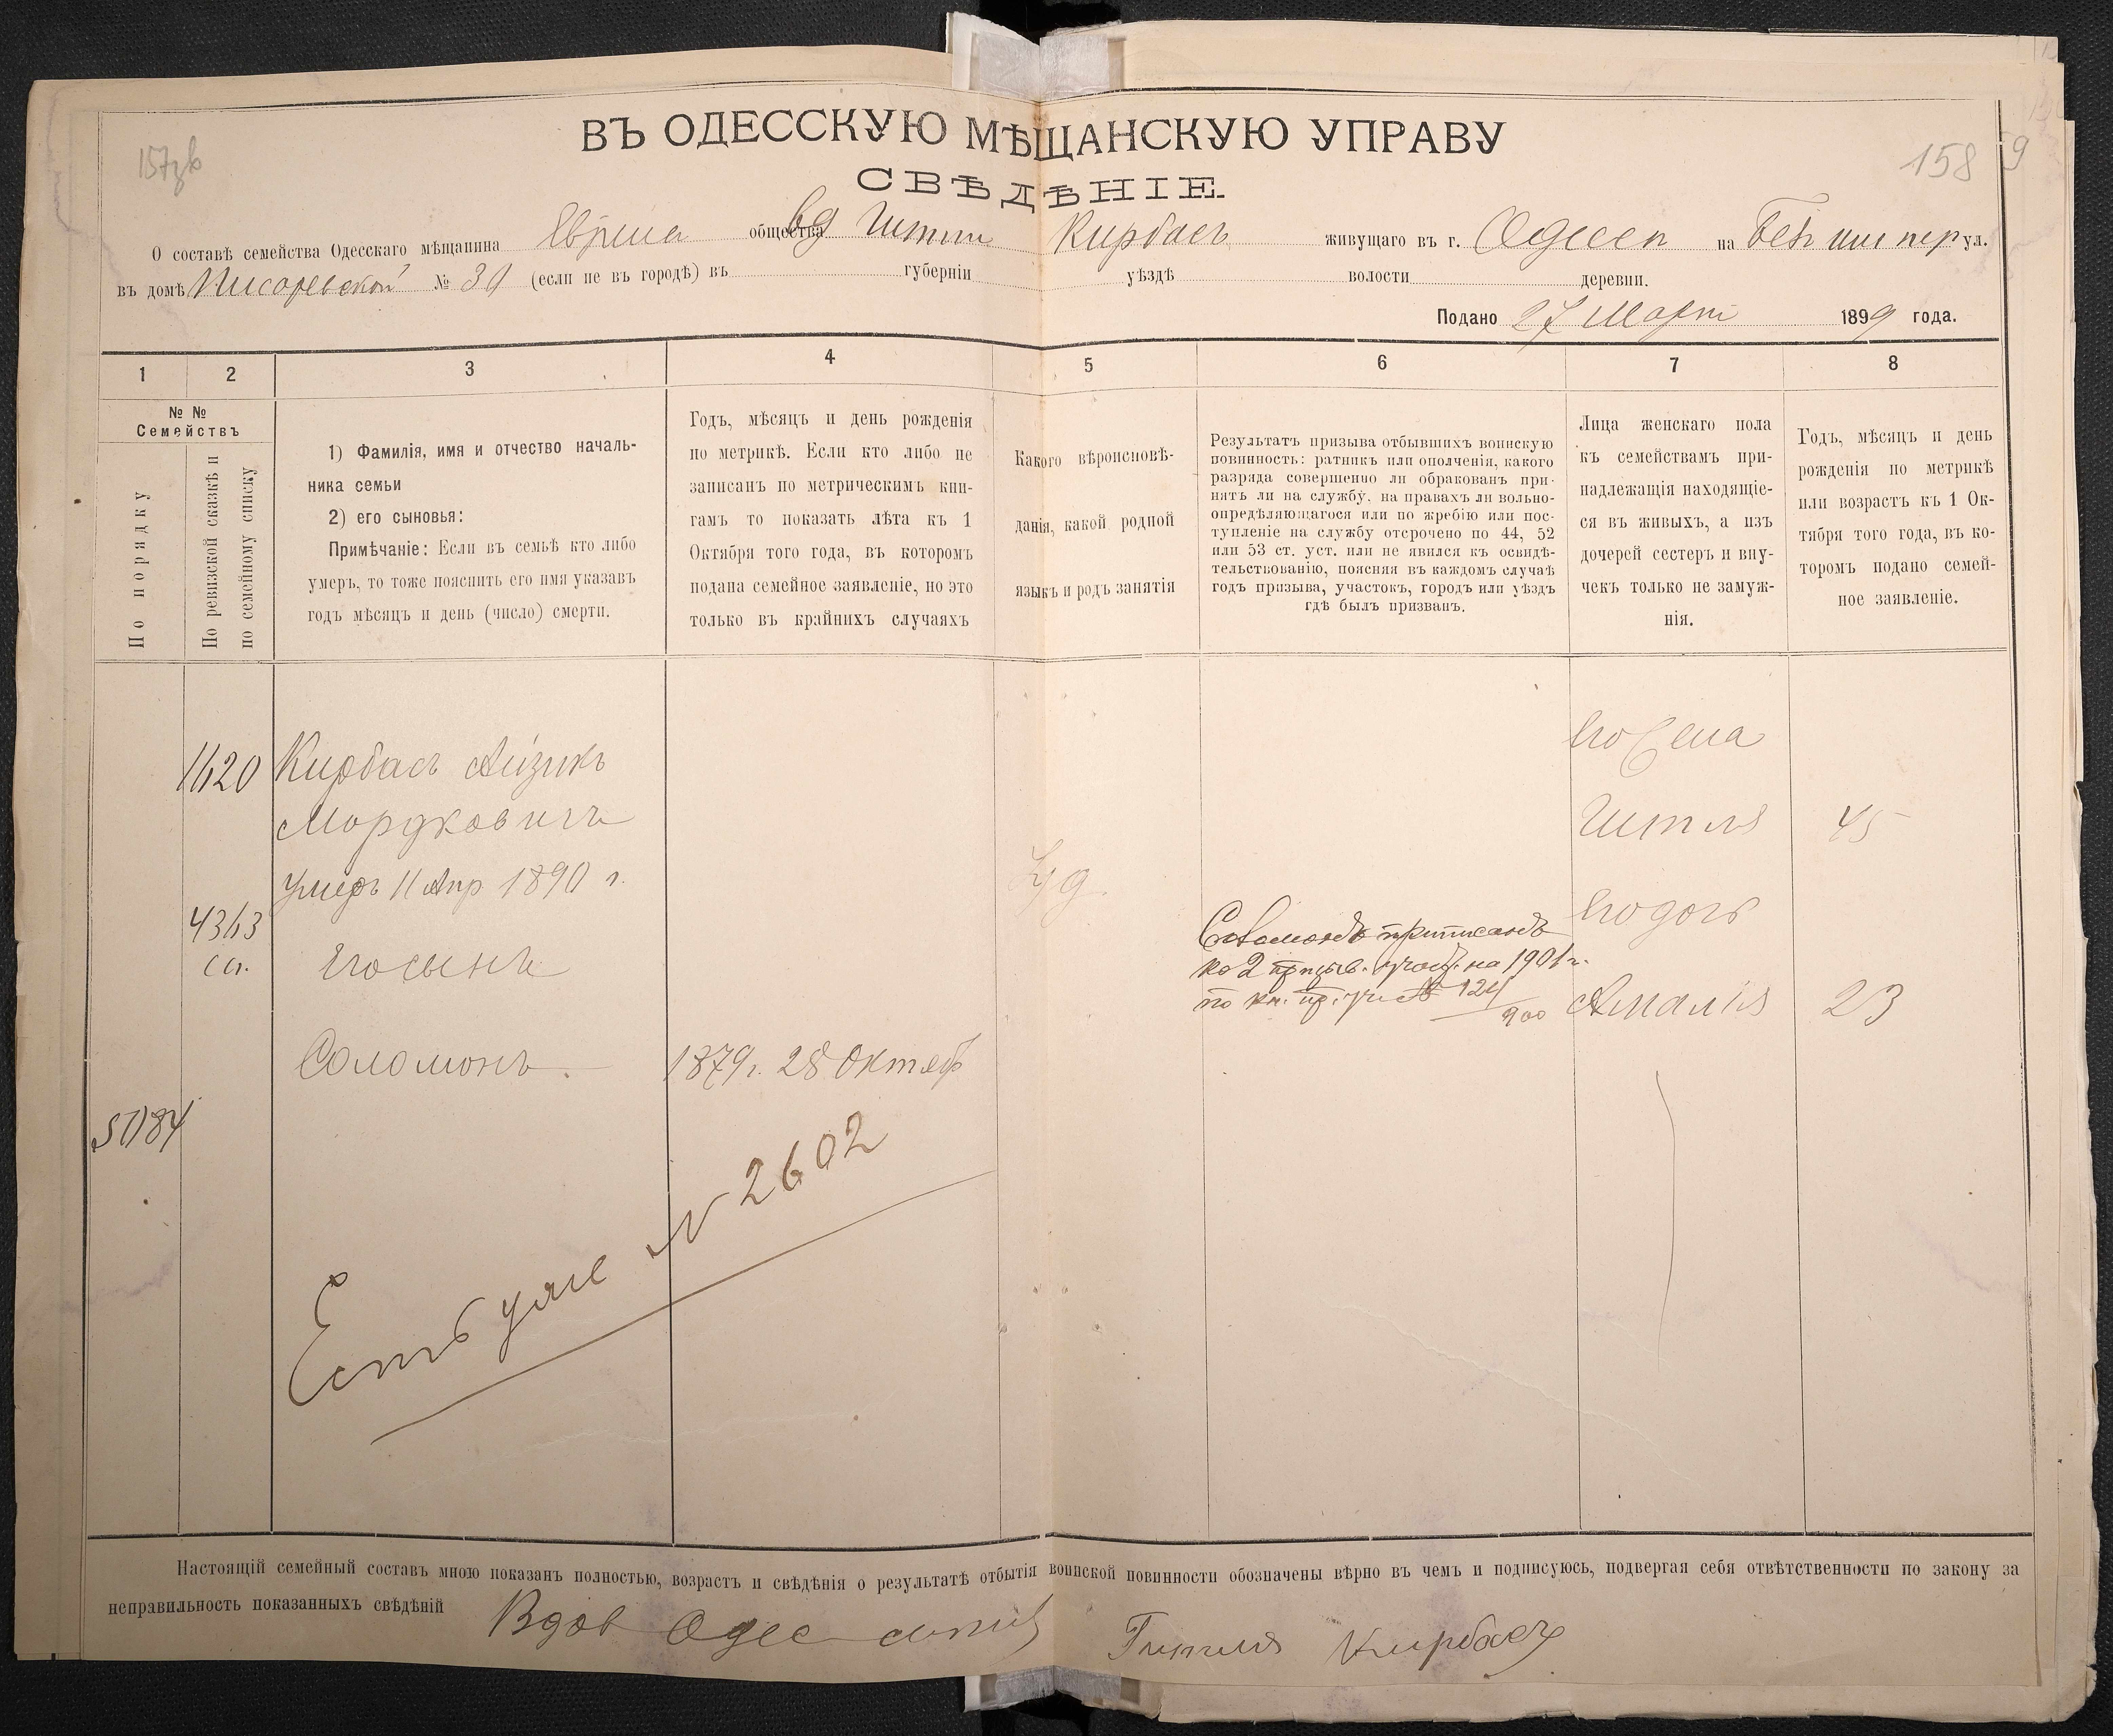 157об
158
59
ВЪ ОДЕССКУЮ МѢЩАНСКУЮ УПРАВУ
СВѢДѢНІЕ
О составѣ семейства Одесскаго мѣщанина Еврея общества вд Гитли Кирбасъ живущаго въ г. Одессѣ на ул.
въ домѣ Писаревской № 39 (если не въ городѣ) въ губерніи уѣздѣ волости деревни.
Подано 27 Март 1899 года.
1 2 3 4 5 6 7 8
№ №
Семействъ
По порядку
По ревизской сказкѣ и
по семейному списку
1) Фамилія, имя и отчество началь-
ника семьи
2) его сыновья:
Примѣчаніе: Если въ семьѣ кто либо
умеръ, то тоже пояснить его имя указавъ
годъ мѣсяцъ и день (число) смерти.
Годъ, мѣсяцъ и день рожденія
по метрикѣ. Если кто либо не
записанъ по метрическимъ кни-
гамъ то показать лѣта къ 1
Октября того года, въ которомъ
подана семейное заявленіе, но это
только въ крайнихъ случаяхъ
Какого вѣроисповѣ-
данія, какой родной
языкъ и родъ занятія
Результатъ призыва отбывшихъ воинскую
повинность: ратникъ или ополченія, какого
разряда совершенно ли обракованъ при-
нятъ ли на службу, на правахъ ли вольно-
опредѣляющагося или по жребію или пос-
тупленіе на службу отсрочено по 44, 52
или 53 ст. уст. или не явился къ освидѣ-
тельствованію, поясняя въ каждомъ случаѣ
годъ призыва, участокъ, городъ или уѣздъ
гдѣ былъ призванъ.
Лица женскаго пола
къ семействамъ при-
надлежащія находящіе-
ся въ живыхъ, а изъ
дочерей сестеръ и вну-
чекъ только не замуж-
нія.
Годъ, мѣсяцъ и день
рожденія по метрикѣ
или возрастъ къ 1 Ок-
тября того года, въ ко-
торомъ подано семей-
ное заявленіе.
1620 Кирбасъ Айзикъ
Мордковичъ
умеръ 11 Апр 1890 г.
4363
сп.
Его сынъ
Соломонъ 1879 г. 28 Октяб
5084
Іуд.
Соломонъ приписанъ
ко 2 призыв. участ. на 1901 г.
по кн. пр. уч. № 124/900
Его жена
Гитля 45
Его дочь
Амалія 23
Есть уже № 2602
Настоящій семейный составъ мною показанъ полностью, возрастъ и свѣдѣнія о результатѣ отбытія воинской повинности обозначены вѣрно въ чемъ и подписуюсь, подвергая себя отвѣтственности по закону за
неправильность показанныхъ свѣдѣній Вдов Одес Гитля Кирбасъ